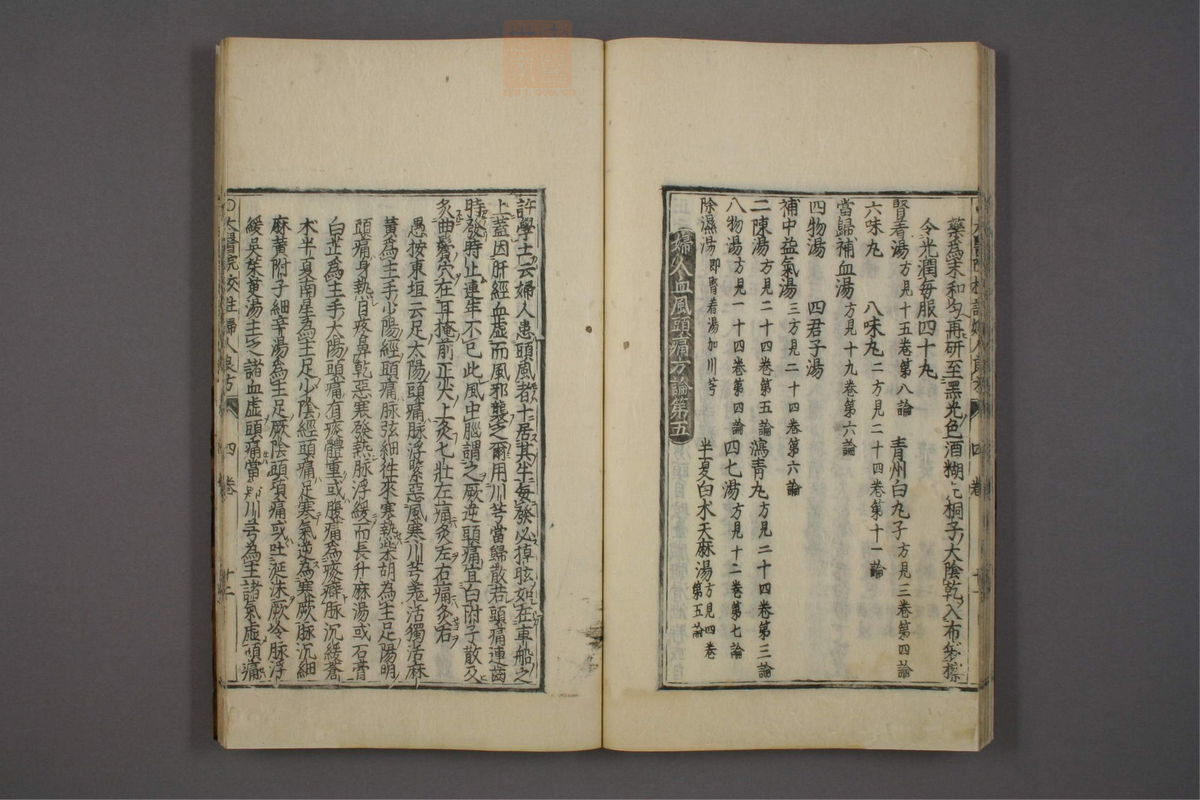 藥為末和勻再研至黑光色酒糊丸桐子大陰乾入布袋擦
令光潤每服四十丸
腎着湯方見十五卷第八論 青州白丸子方見三卷第四論
六味丸 八味丸二方見二十四卷第十一論
當歸補血湯方見十九卷第六論
四物湯 四君子湯
補中益氣湯三方見二十四卷第六論
二陳湯方見二十四卷第五論 瀉青丸方見二十四卷第三論
八物湯方見二十四卷第四論 四七湯方見十二卷第七論
除濕湯即腎着湯加川芎 半夏白朮天麻湯方見四卷第五論
婦人血風頭痛方論第五
許學士云婦人患頭風者十居其半每發必掉眩如在車船之
上蓋因肝經血虛而風邪襲之爾用川芎當歸散若頭痛連齒
時發時止連年不已此風中腦謂之厥逆頭痛宜白附子散及
灸曲鬢穴在耳掩前正尖上灸七壯左痛灸左右痛灸右
愚按東垣云足太陽頭痛脉浮緊惡風寒川芎羗活獨活麻
黃為主手少陽經頭痛脉弦細徃來寒熱柴胡為主足陽明
頭痛身熱目疼鼻乾惡寒發熱脉浮緩而長升麻湯或石膏
白芷為主手太陽頭痛有痰體重或腹痛為痰癖脉沉緩蒼
朮半夏南星為主足少陰經頭痛足寒氣逆為寒厥脉沉細
麻黃附子細辛湯為主足厥陰頭項痛或吐涎沫厥冷脉浮
緩吳茱萸湯主之諸血虛頭痛當歸川芎為主諸氣虛頭痛
○太醫院校註婦人良方 四卷 十二